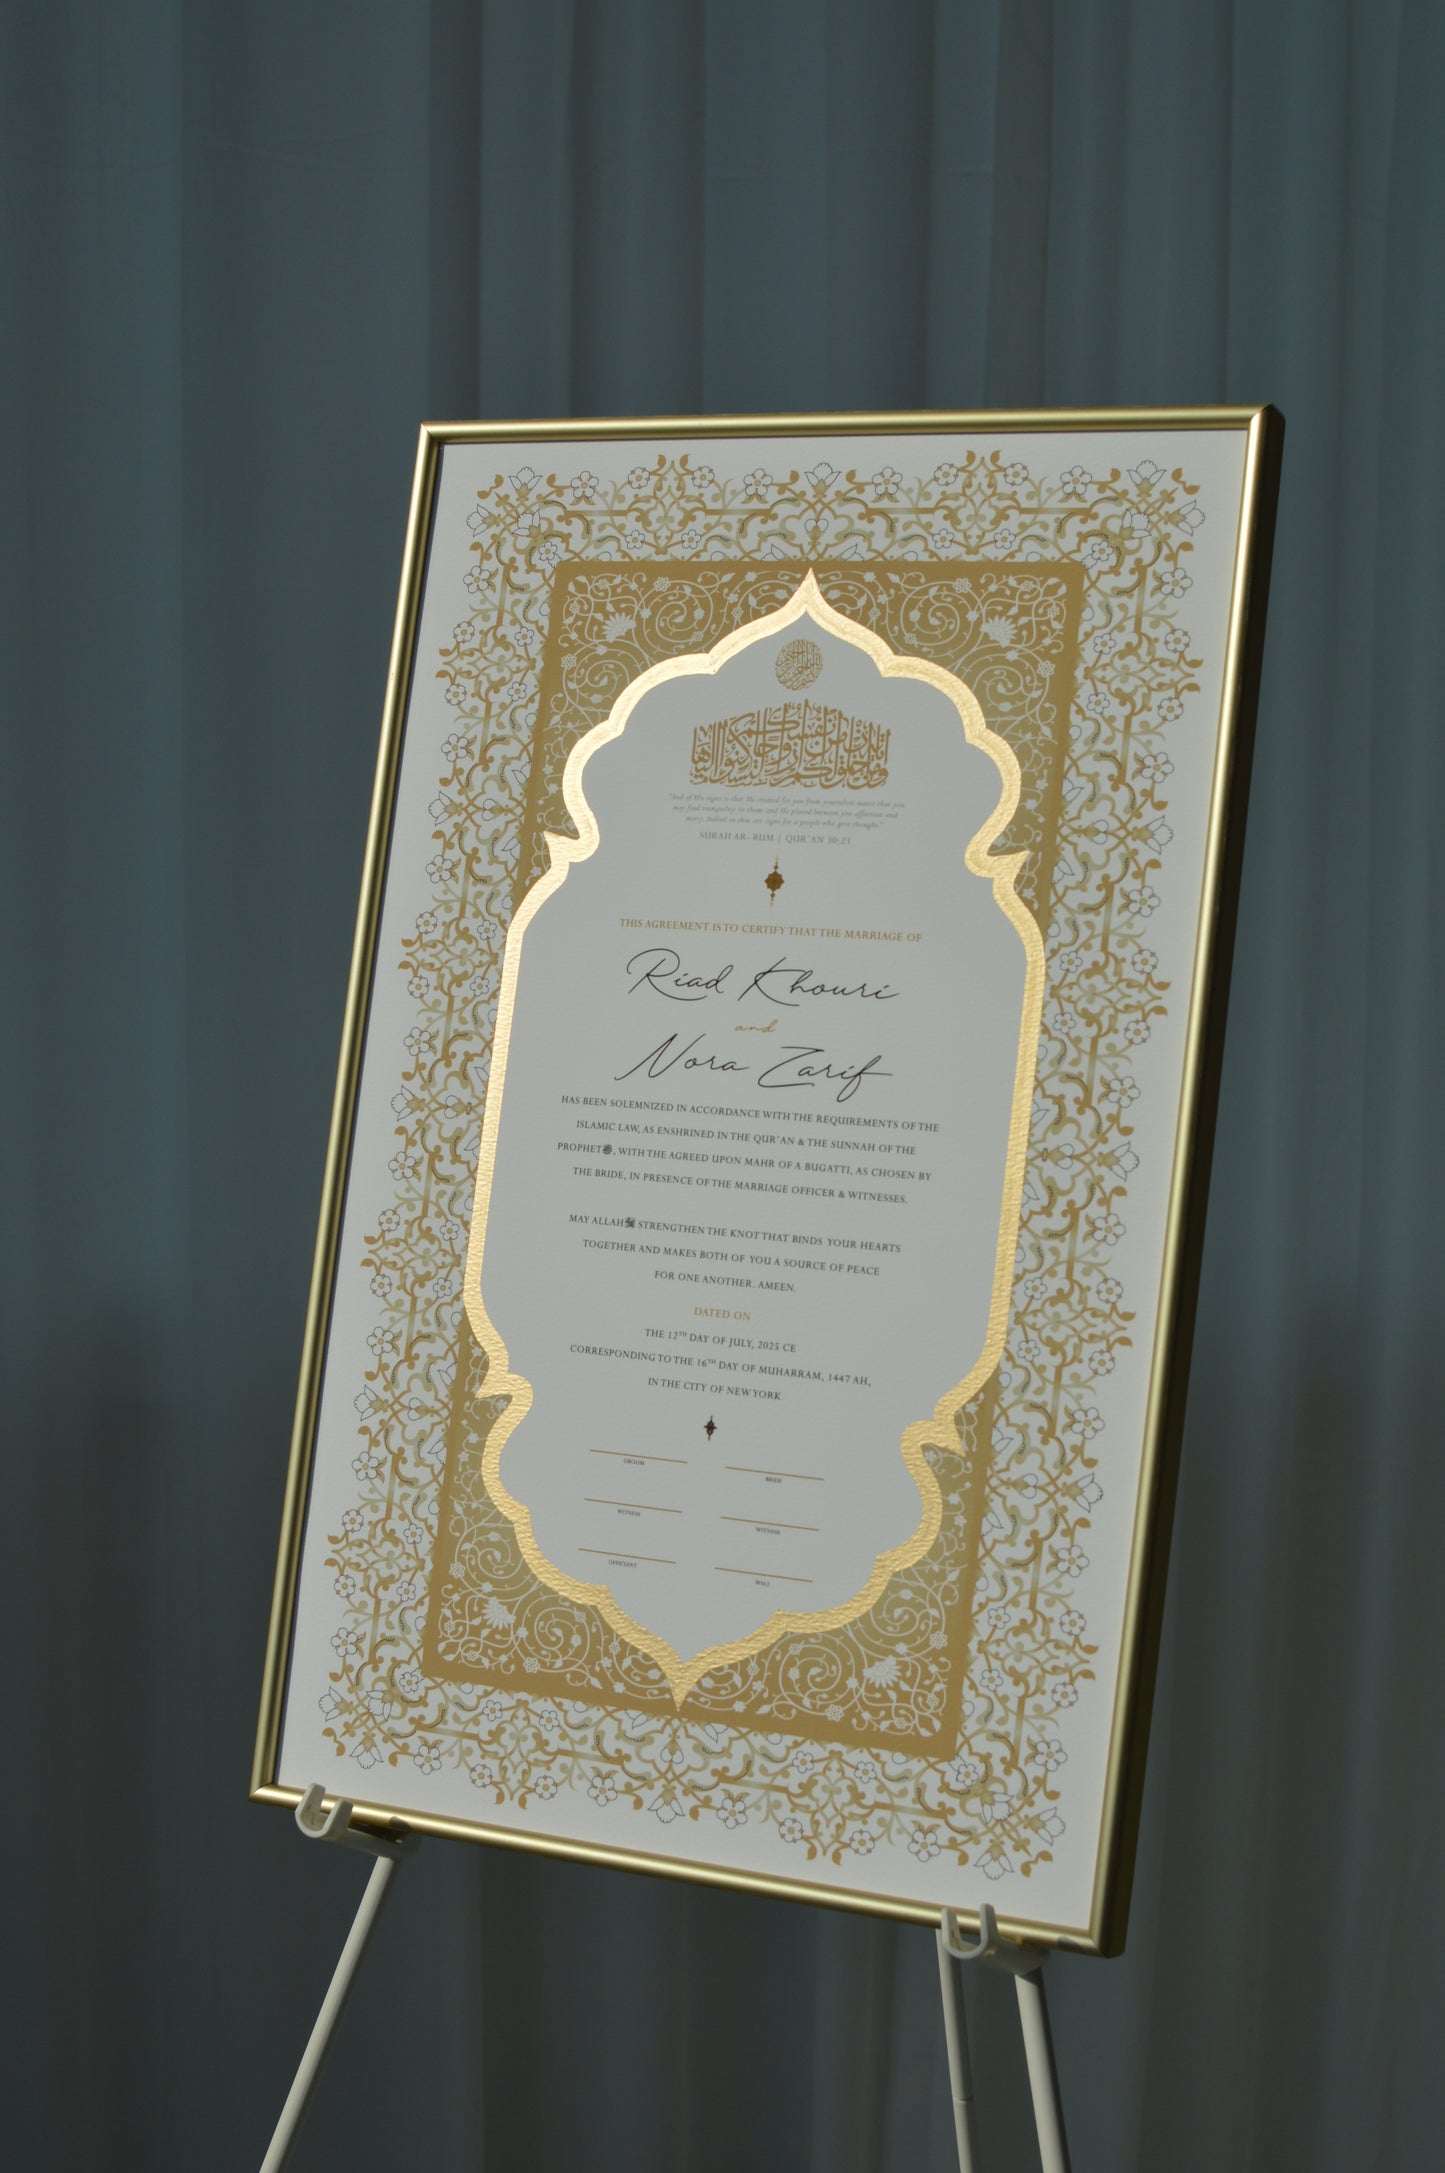 بسم الله الرحمن الرحيم
ومن آياته أن خلق لكم من أنفسكم أزواجا لتسكنوا إليها
"And of His signs is that He created for you from yourselves mates that you
may find tranquility in them; and He placed between you affection and
mercy. Indeed in that are signs for a people who give thought."
SURAH AR- RUM | QUR'AN 30:21
THIS AGREEMENT IS TO CERTIFY THAT THE MARRIAGE OF
Riad Khouri
and
Nora Zarif
HAS BEEN SOLEMNIZED IN ACCORDANCE WITH THE REQUIREMENTS OF THE
ISLAMIC LAW, AS ENSHRINED IN THE QUR'AN & THE SUNNAH OF THE
PROPHET ﷺ, WITH THE AGREED UPON MAHR OF A BUGATTI, AS CHOSEN BY
THE BRIDE, IN PRESENCE OF THE MARRIAGE OFFICER & WITNESSES.
MAY ALLAH STRENGTHEN THE KNOT THAT BINDS YOUR HEARTS
TOGETHER AND MAKES BOTH OF YOU A SOURCE OF PEACE
FOR ONE ANOTHER. AMEEN.
DATED ON
THE 12TH DAY OF JULY, 2025 CE
CORRESPONDING TO THE 16TH DAY OF MUHARRAM, 1447 AH,
IN THE CITY OF NEW YORK
GROOM BRIDE
WITNESS WITNESS
OFFICIANT WALI